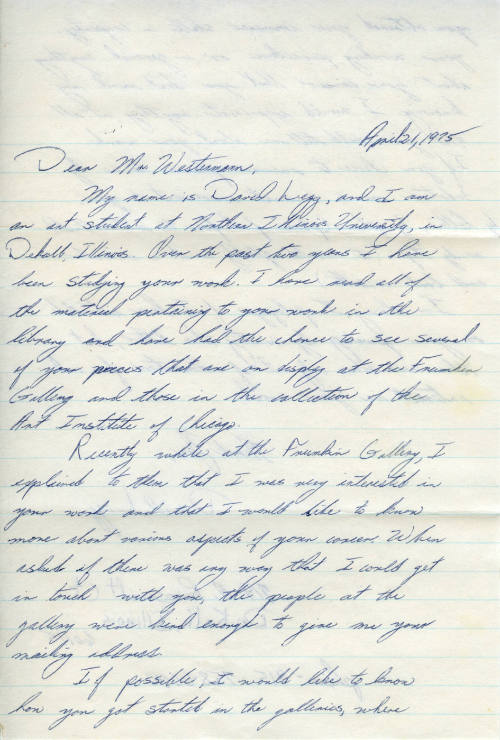 April 21, 1975
Dear Mr. Westermann,
My name is David Legg, and I am
an art student at Northern Illinois University, in
Dekalb, Illinois. Over the past two years I have
been studying your work. I have read all of
the material pertaining to your work in the
library and have had the chance to see several
of your pieces that are on display at the Frumkin
Gallery and those in the collection of the
Art Institute of Chicago.
Recently while at the Frumkin Gallery, I
explained to them that I was very interested in
your work and that I would like to know
more about various aspects of your career. When
asked if there was any way that I could get
in touch with you, the people at the
gallery were kind enough to give me your
mailing address.
If possible, I would like to know
how you got started in the galleries, where